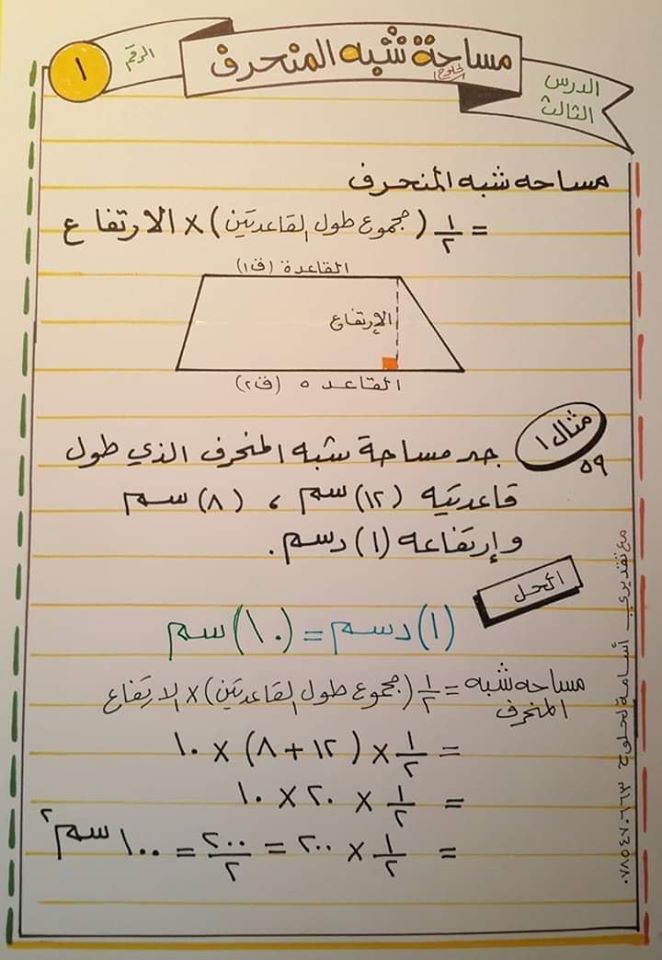 الدرس الثالث
مساحة شبه المنحرف
الحلوح
الرقم
١
مساحه شبه المنحرف
= ١/٢ (مجموع طول القاعدتين) × الارتفاع
القاعدة (ق١)
الإرتفاع
القاعده (ق٢)
مثال ١
٥٩
جد مساحة شبه المنحرف الذي طول
قاعدتيه (١٢) سم ، (٨) سم
وإرتفاعه (١) دسم.
الحل
(١) دسم = (١٠) سم
مساحه شبه المنحرف = ١/٢ (مجموع طول القاعدتين) × الارتفاع
= ١/٢ × (١٢ + ٨) × ١٠
= ١/٢ × ٢٠ × ١٠
= ١/٢ × ٢٠٠ = ٢٠٠/٢ = ١٠٠ سم٢
مع تقديري أسامة لحلوح ٠٧٨٥٤٧٠٦٦٣